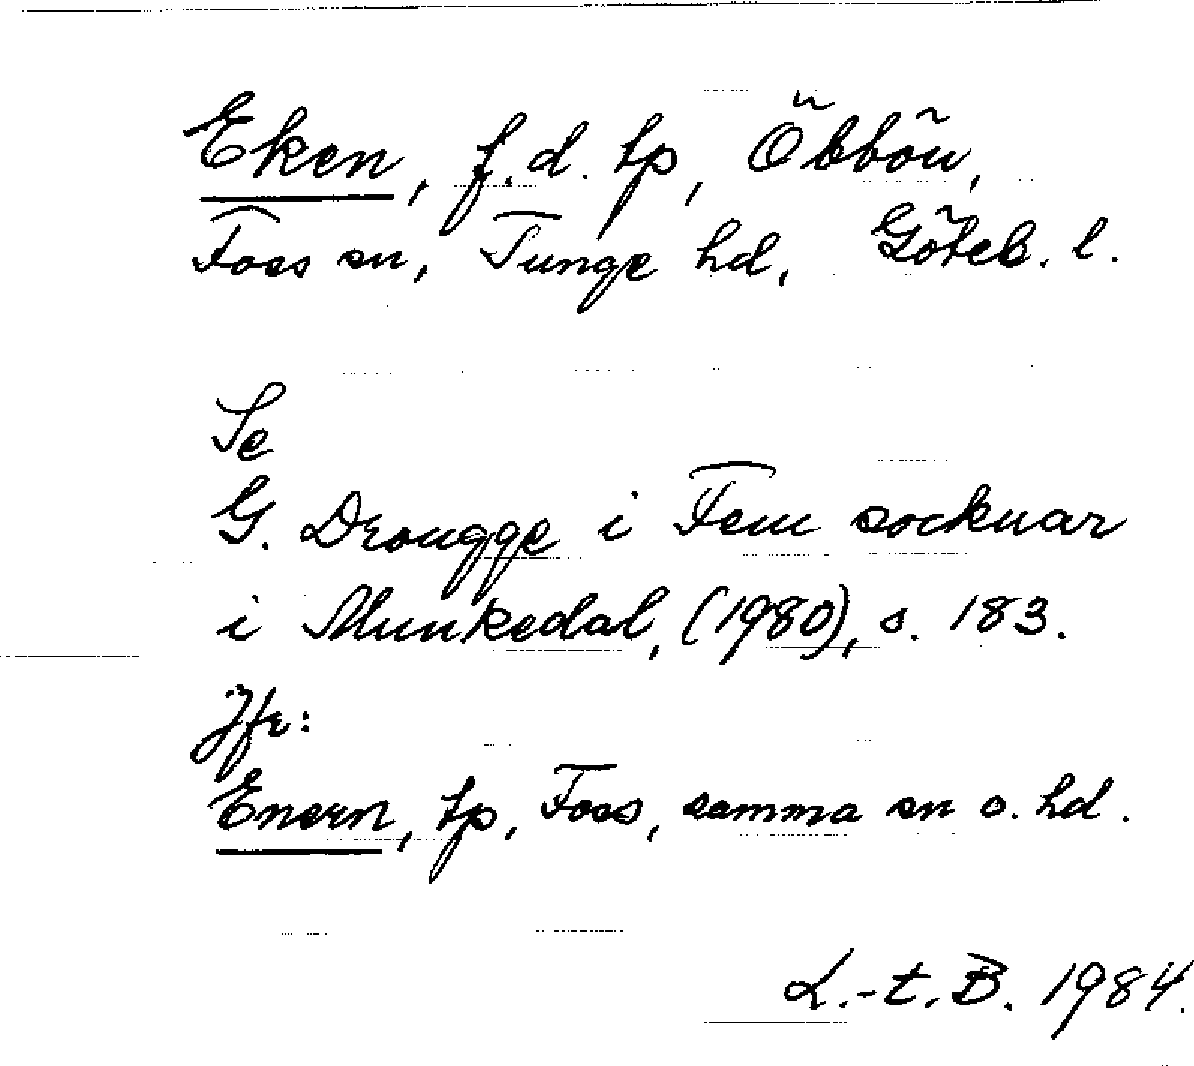 Eken, f.d. tp, Öbbön,
Foss sn, Tunge hd, Göteb. l.
Se
G. Drougge i Fem socknar
i Munkedal, (1980), s. 183.
Jfr:
Enern, tp, Foss, samma sn o. hd.
L.-t. B. 1984.